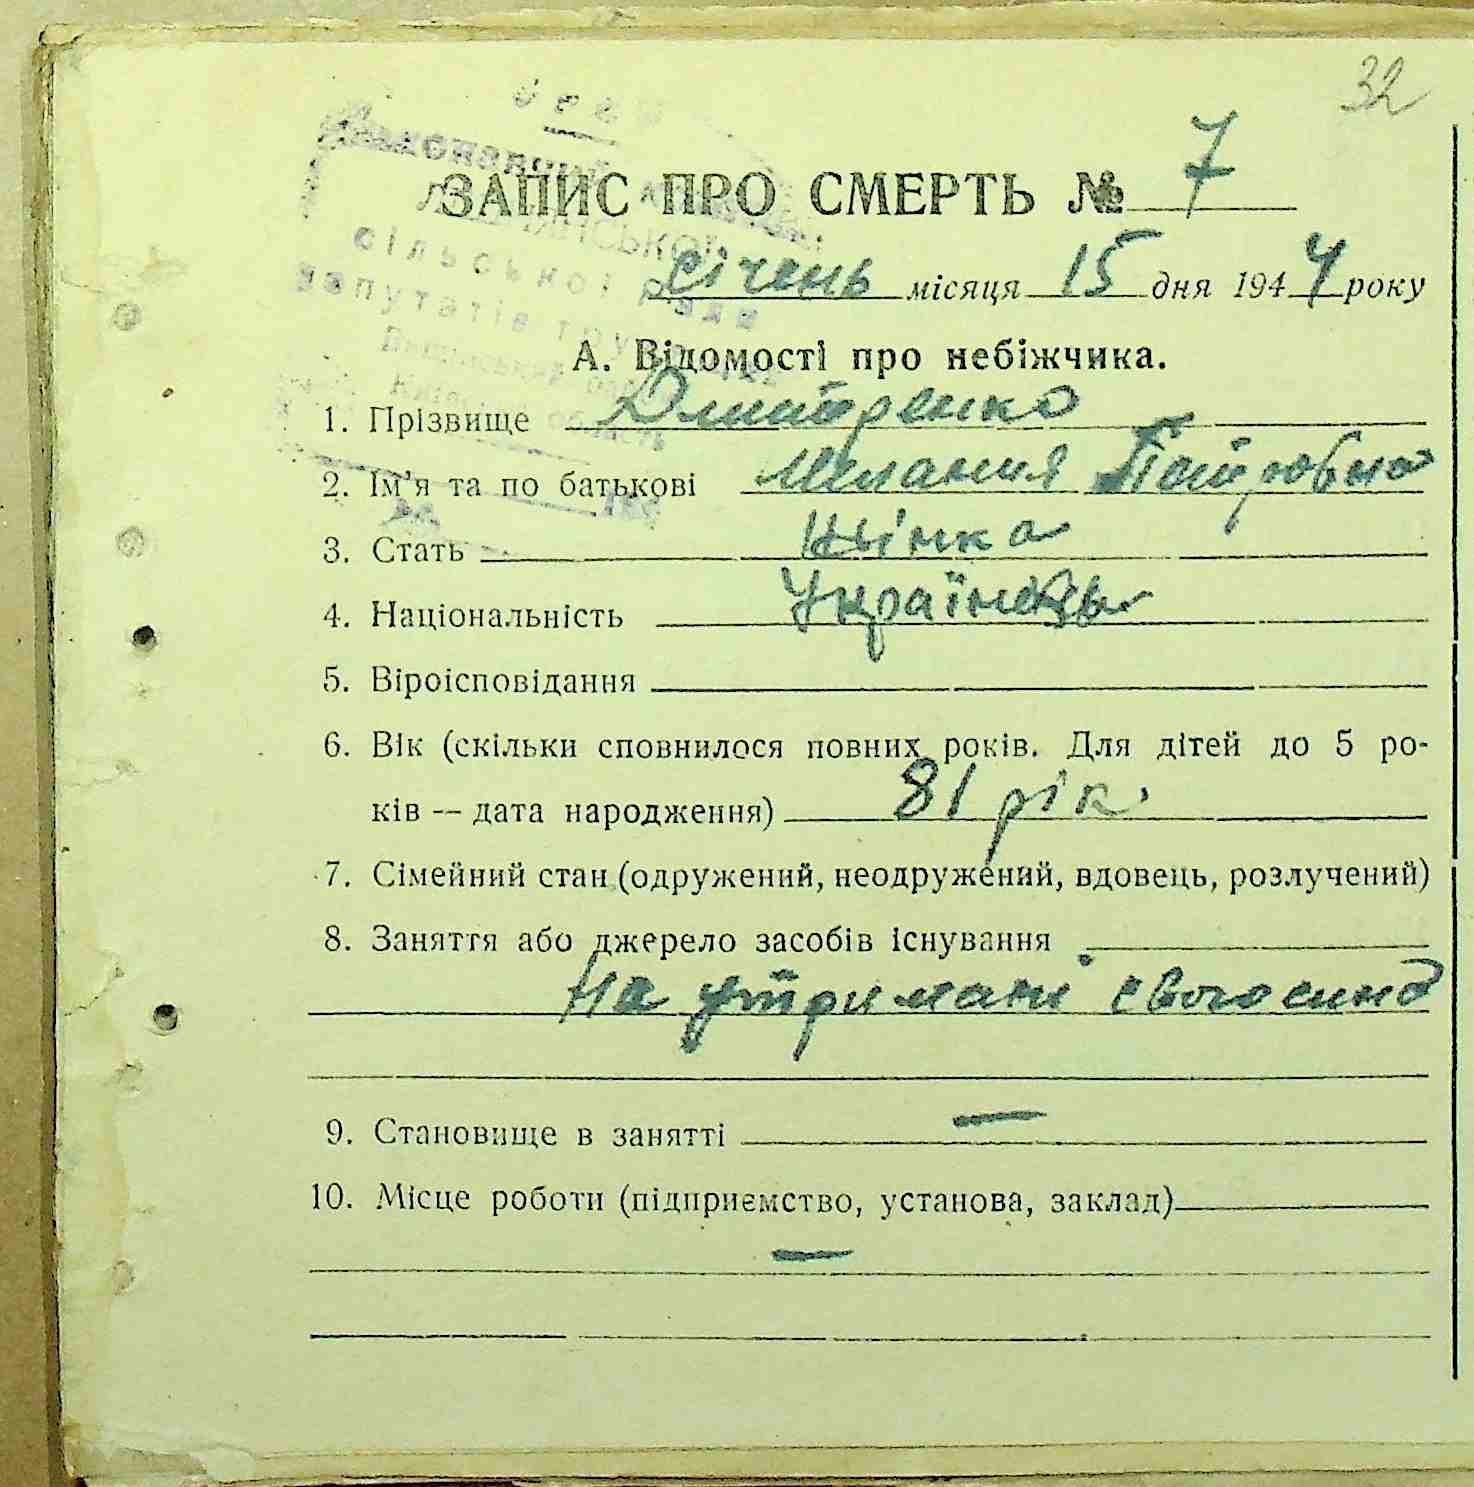 32
ЗАПИС ПРО СМЕРТЬ № 7
січень місяця 15 дня 1944 року
сільської ради
депутатів
область
А. Відомості про небіжчика.
1. Прізвище Дмитренко
2. Ім'я та по батькові Мелания Петровна
3. Стать жінка
4. Національність Українець
5. Віроісповідання
6. Вік (скільки сповнилося повних років. Для дітей до 5 ро-
ків — дата народження) 81 рік
7. Сімейний стан (одружений, неодружений, вдовець, розлучений)
8. Заняття або джерело засобів існування
На утримані свого сина
9. Становище в занятті —
10. Місце роботи (підприємство, установа, заклад)
—